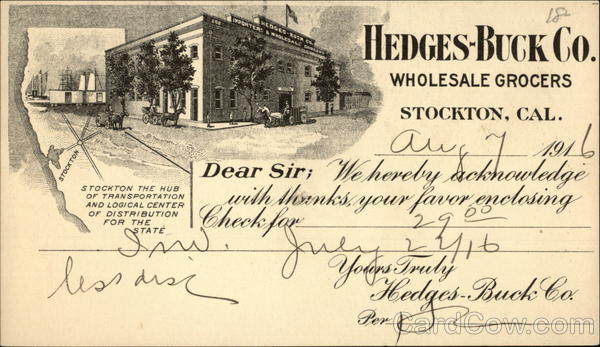 18
HEDGES-BUCK CO.
HEDGES-BUCK CO.
WHOLESALE GROCERS
STOCKTON, CAL.
Aug 7 1916
Dear Sir; We hereby acknowledge
with thanks, your favor enclosing
Check for 29.00
Inv. July 22/16
less disc
Yours Truly
Hedges-Buck Co.
Per
STOCKTON
STOCKTON THE HUB
OF TRANSPORTATION
AND LOGICAL CENTER
OF DISTRIBUTION
FOR THE
STATE
CardCow.com